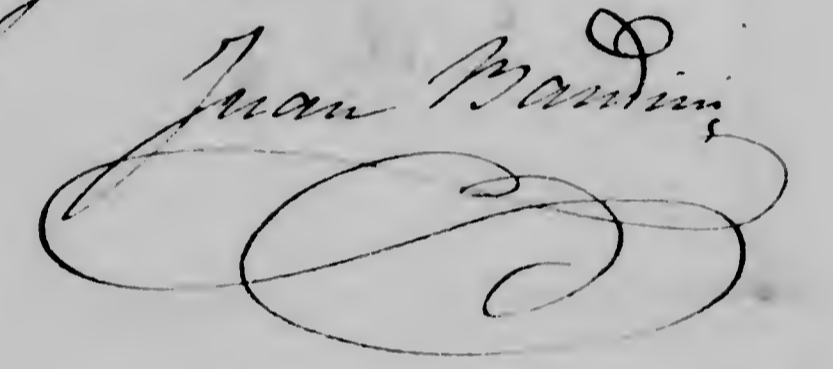 Juan Bandini